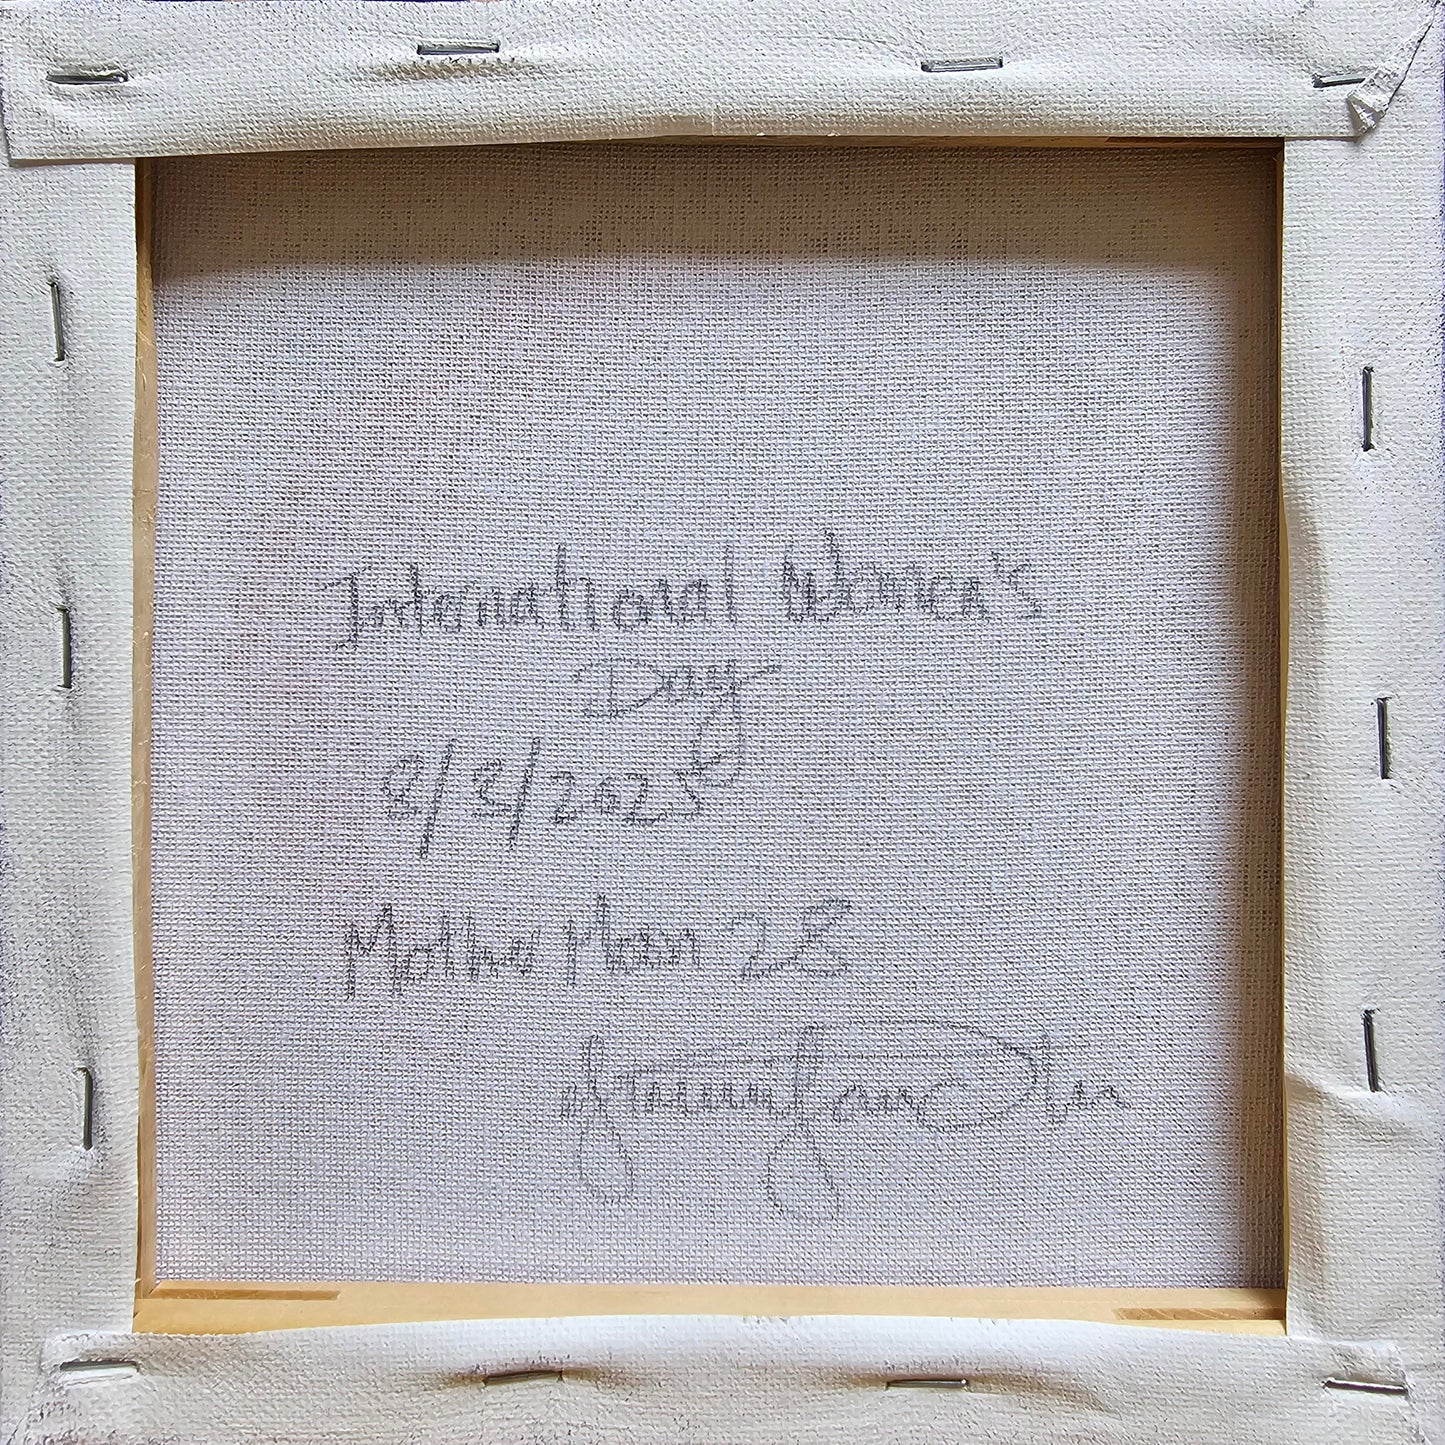 International Women's
Day
8/3/2025
Mother Moon 28